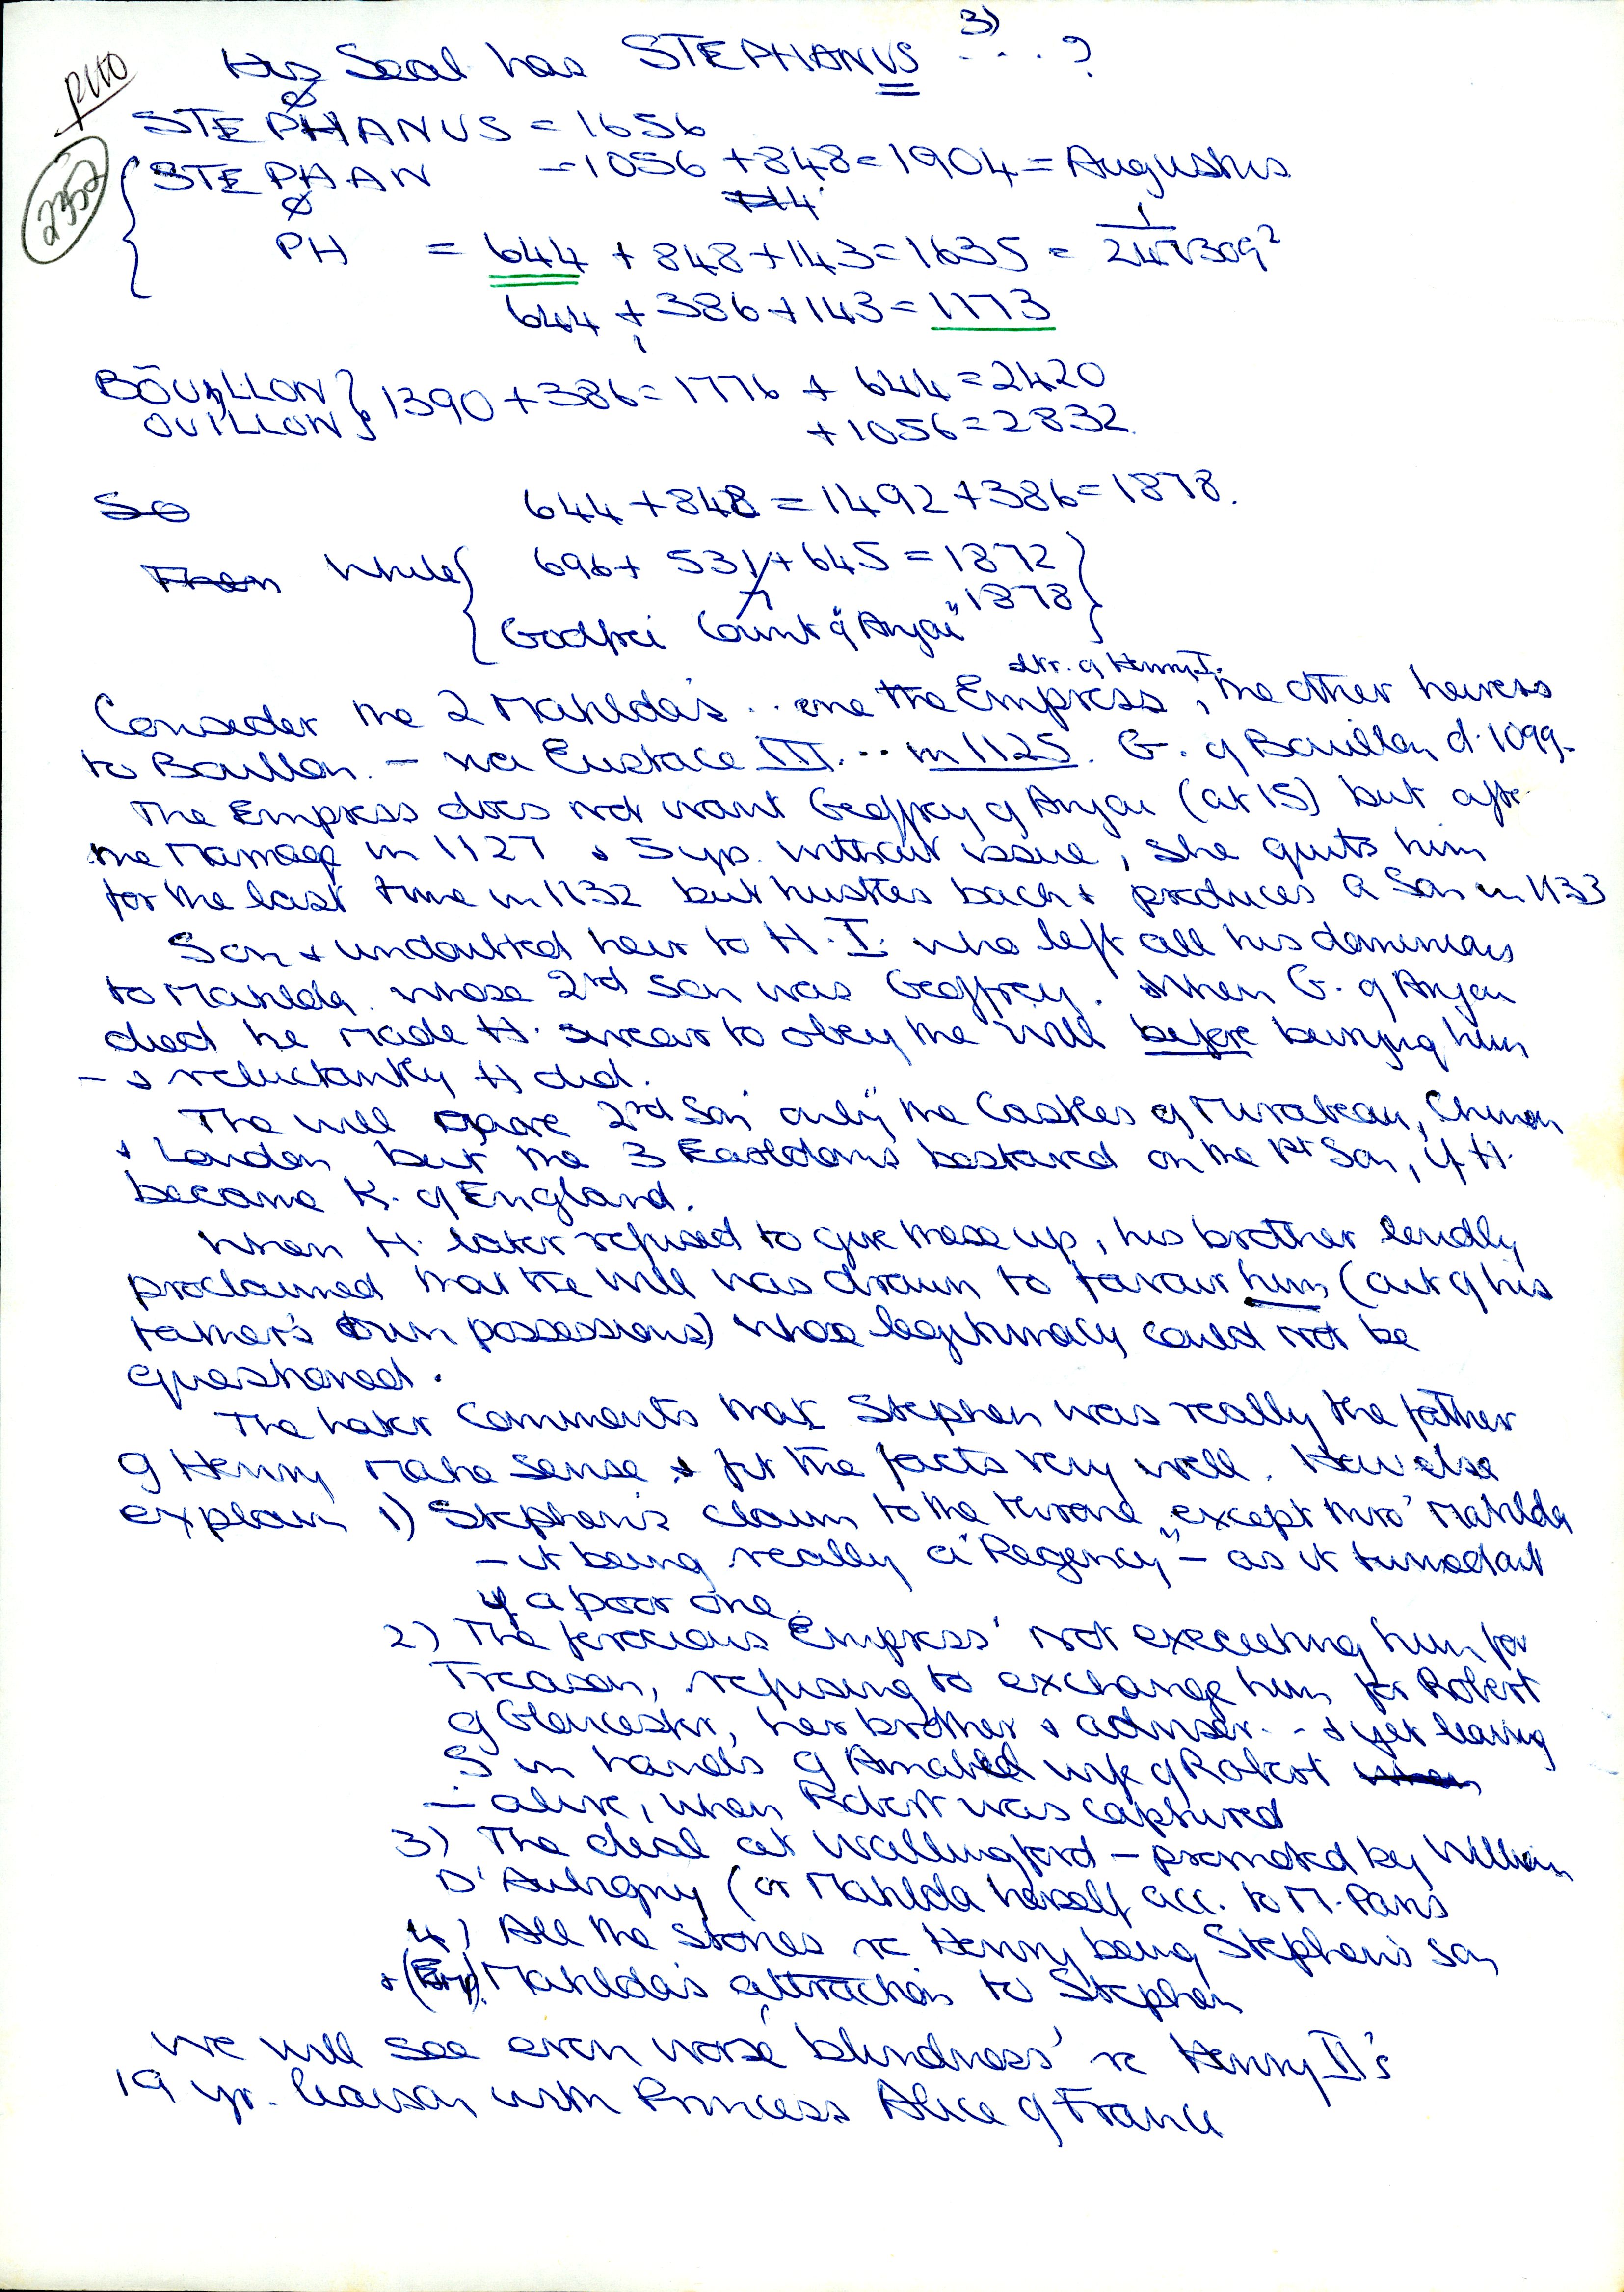 3)
His Seal has STEPHANUS . . . ?
PTO
Ø
STEPHANUS = 1656
2352
STEPHAN = 1056 + 848 = 1904 = Augustus
Ø
PH = 644 + 848 + 143 = 1635 =
644 + 386 + 143 = 1173
BOUILLON
OUILLON } 1390 + 386 = 1776 + 644 = 2420
+ 1056 = 2832.
So 644 + 848 = 1492 + 386 = 1878.
Then While { 696 + 531 + 645 = 1872 }
7 1878
Godfrei Count of "Anjou"
dtr. of Henry I.
Consider the 2 Matilda's .. one the Empress, the other heiress
to Boullon. – via Eustace III. .. in 1125. G. of Bouillon d. 1099.
The Empress does not want Geoffrey of Anjou (at 15) but after
the Marriage in 1127 & 5 yrs. without issue, she quits him
for the last time in 1132 but hustles back & produces a Son in 1133
Son & undoubted heir to H. I. who left all his dominions
to Matilda. whose 2nd Son was Geoffrey. When G. of Anjou
died he made H. swear to obey the Will before burying him
– & reluctantly H did.
The will gave 2nd Son "only" the Castles of Mirabeau, Chinon
& Loudon but the 3 Earldoms bestowed on the 1st Son, if H.
became K. of England.
When H. later refused to give these up, his brother loudly
proclaimed that the Will was drawn to favour him (out of his
father's own possessions) whose legitimacy could not be
questioned.
The later comments that Stephen was really the father
of Henry make sense & fit the facts very well. How else
explain 1) Stephen's claim to the throne except thro' Matilda
– it being really a "Regency" – as it turned out
if a poor one.
2) The ferocious 'Empress' not executing him for
Treason, refusing to exchange him for Robert
of Gloucester, her brother & adviser. – & yet leaving
S in hands of Amabel wife of Robert when
– alive, when Robert was captured
3) The deal at Wallingford – promoted by William
D'Aubigny (or Matilda herself acc. to M. Paris
4) All the stories re Henry being Stephen's son
& (Emp). Matilda's attraction to Stephen
We will see even worse 'blindness' re Henry II's
19 yr. liaison with Princess Alice of France